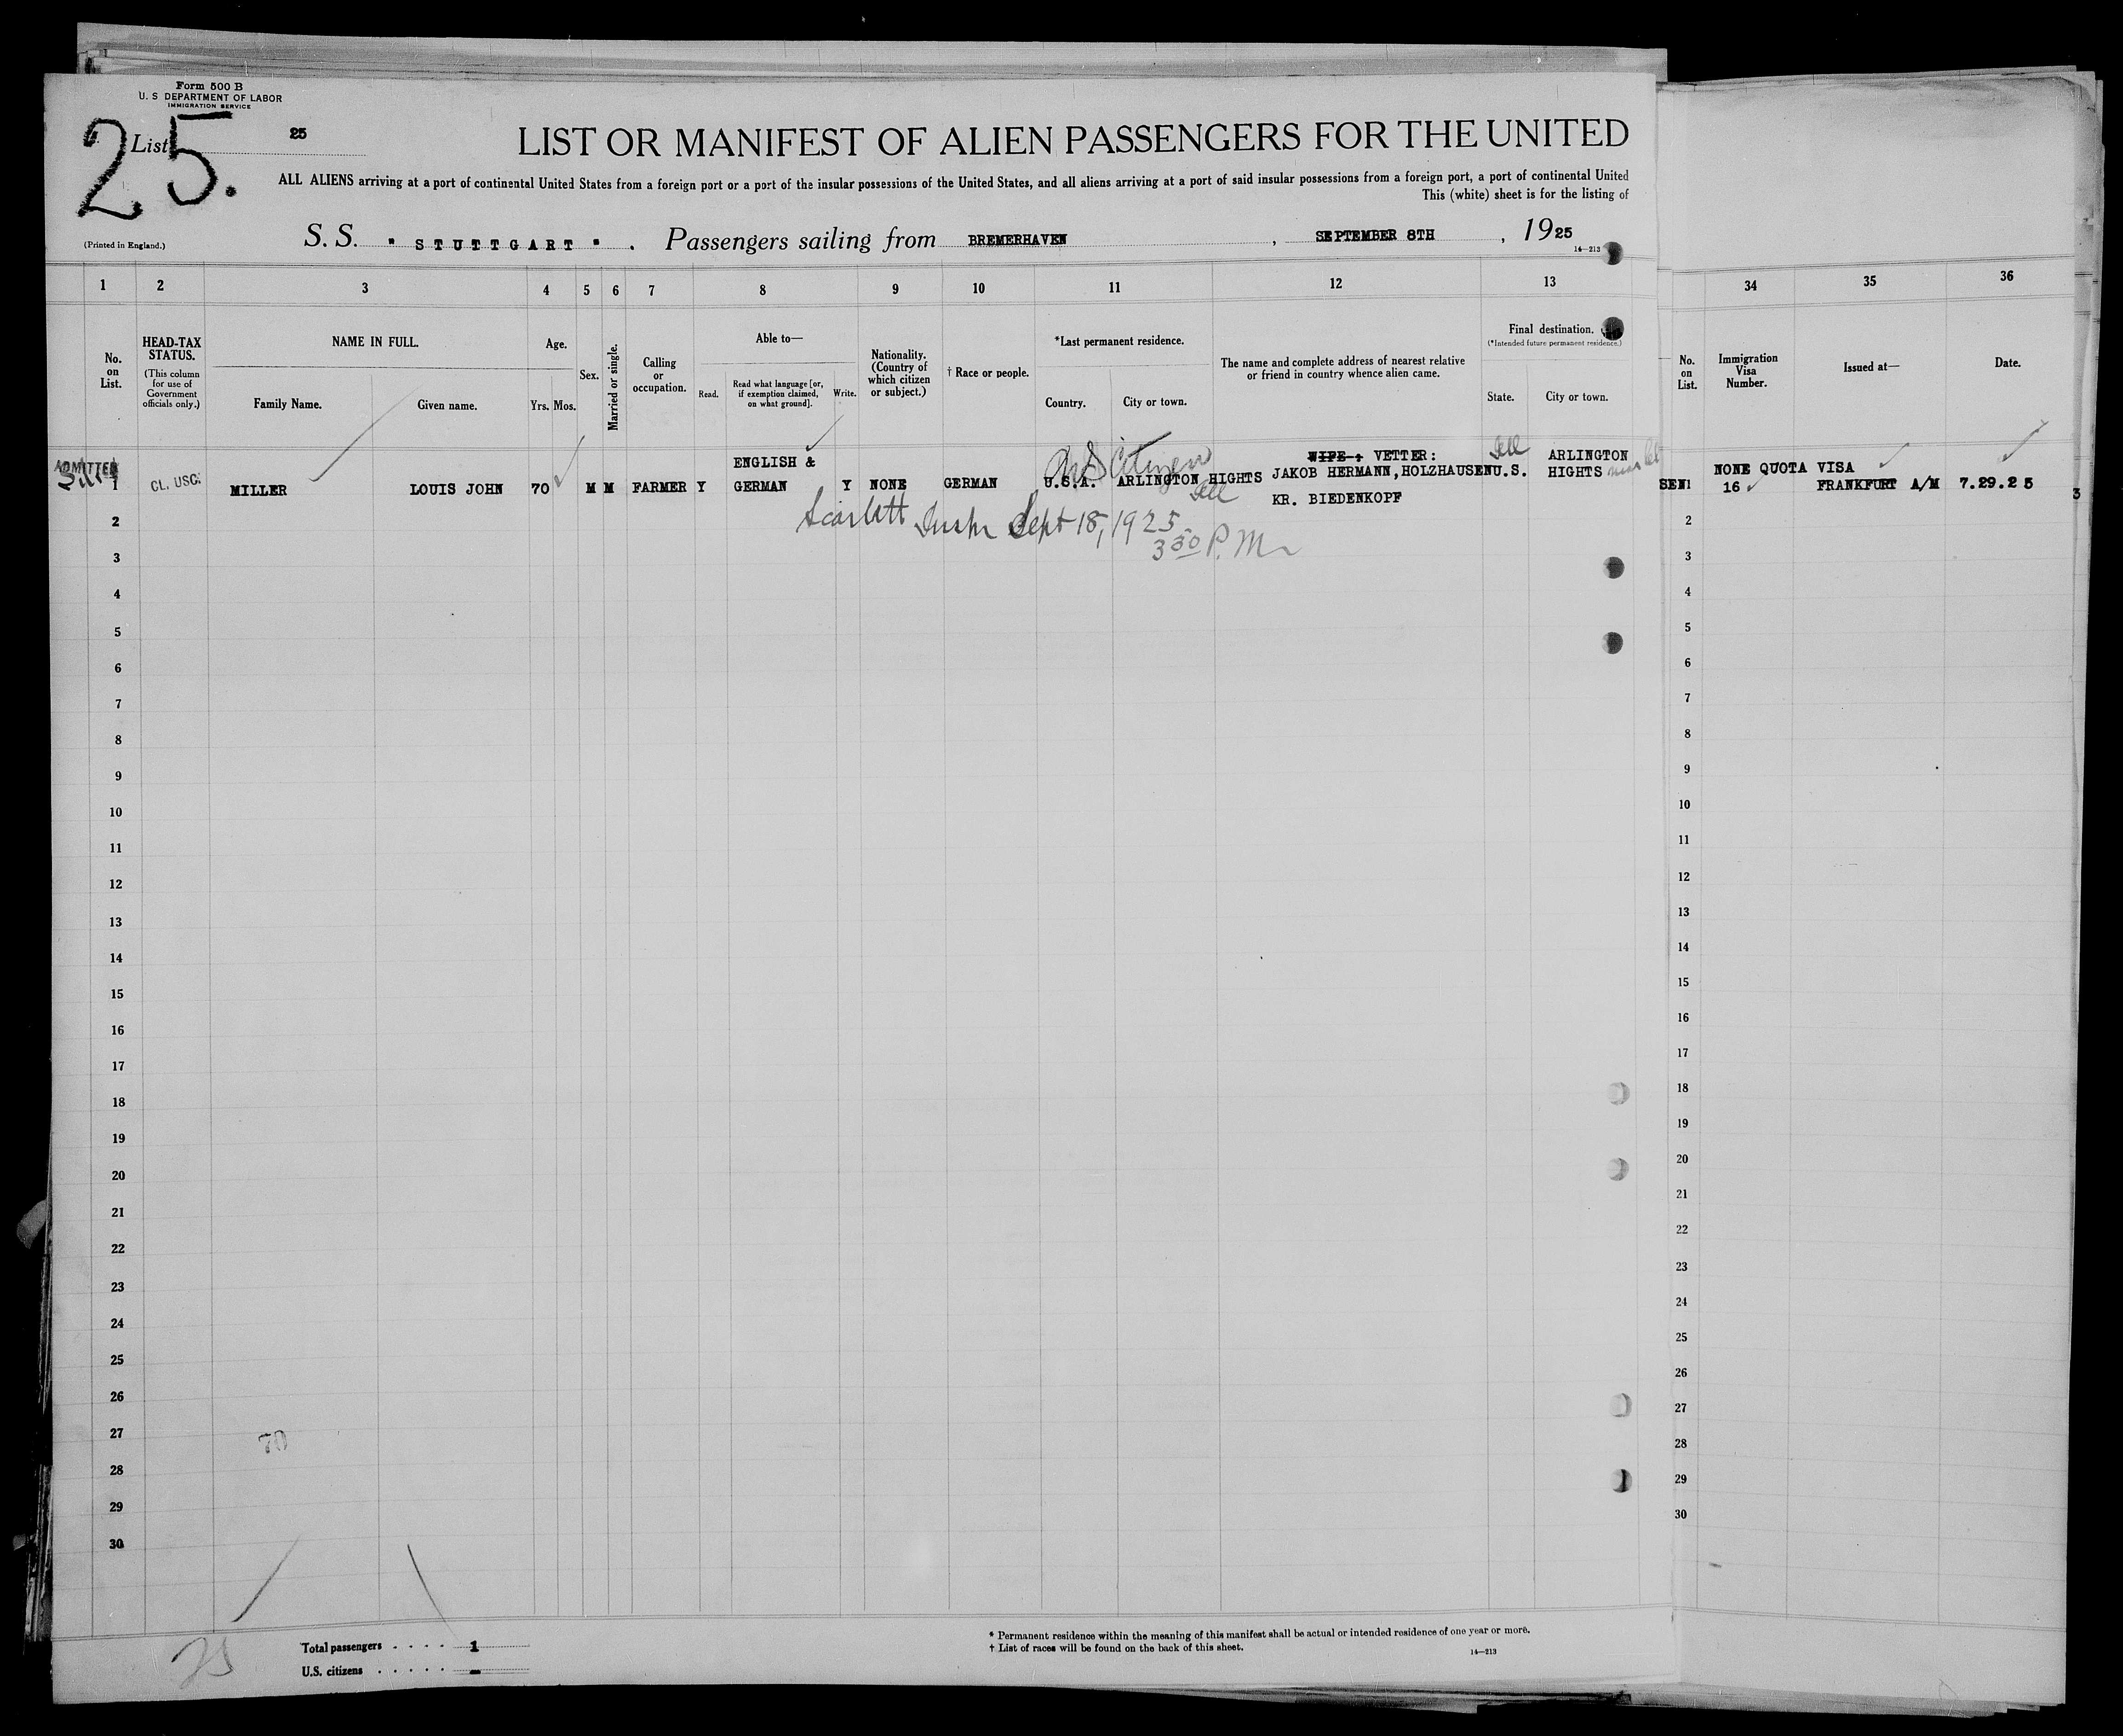 Form 500 B
U. S DEPARTMENT OF LABOR
IMMIGRATION SERVICE
25.
List 25
LIST OR MANIFEST OF ALIEN PASSENGERS FOR THE UNITED
ALL ALIENS arriving at a port of continental United States from a foreign port or a port of the insular possessions of the United States, and all aliens arriving at a port of said insular possessions from a foreign port, a port of continental United
This (white) sheet is for the listing of
(Printed in England.)
S. S. " STUTTGART " . Passengers sailing from BREMERHAVEN , SEPTEMBER 8TH , 1925
14—213
1 2 3 4 5 6 7 8 9 10 11 12 13 34 35 36
No. on List.
HEAD-TAX STATUS.
(This column for use of Government officials only.)
NAME IN FULL.
Family Name. Given name.
Age.
Yrs. Mos.
Sex.
Married or single.
Calling or occupation.
Able to—
Read. Read what language [or, if exemption claimed, on what ground]. Write.
Nationality. (Country of which citizen or subject.)
† Race or people.
*Last permanent residence.
Country. City or town.
The name and complete address of nearest relative or friend in country whence alien came.
Final destination.
(*Intended future permanent residence.)
State. City or town.
No. on List.
Immigration Visa Number.
Issued at—
Date.
ADMITTED
U S Citizen
Ill
ENGLISH & WIFE: VETTER: ARLINGTON
1 CL. USC. MILLER LOUIS JOHN 70 M M FARMER Y GERMAN Y NONE GERMAN U.S.A. ARLINGTON HIGHTS JAKOB HERMANN,HOLZHAUSEN U.S. HIGHTS
KR. BIEDENKOPF
Ill
SEN1 NONE QUOTA VISA
16 FRANKFURT A/M 7.29.25
3
Scarlett Inspr Sept 18, 1925
3 30 P. M
2
3
4
5
6
7
8
9
10
11
12
13
14
15
16
17
18
19
20
21
22
23
24
25
26
27
28
29
30
2
3
4
5
6
7
8
9
10
11
12
13
14
15
16
17
18
19
20
21
22
23
24
25
26
27
28
29
30
70
Total passengers . . . . 1
U.S. citizens . . . . . . -
* Permanent residence within the meaning of this manifest shall be actual or intended residence of one year or more.
† List of races will be found on the back of this sheet.
14—213